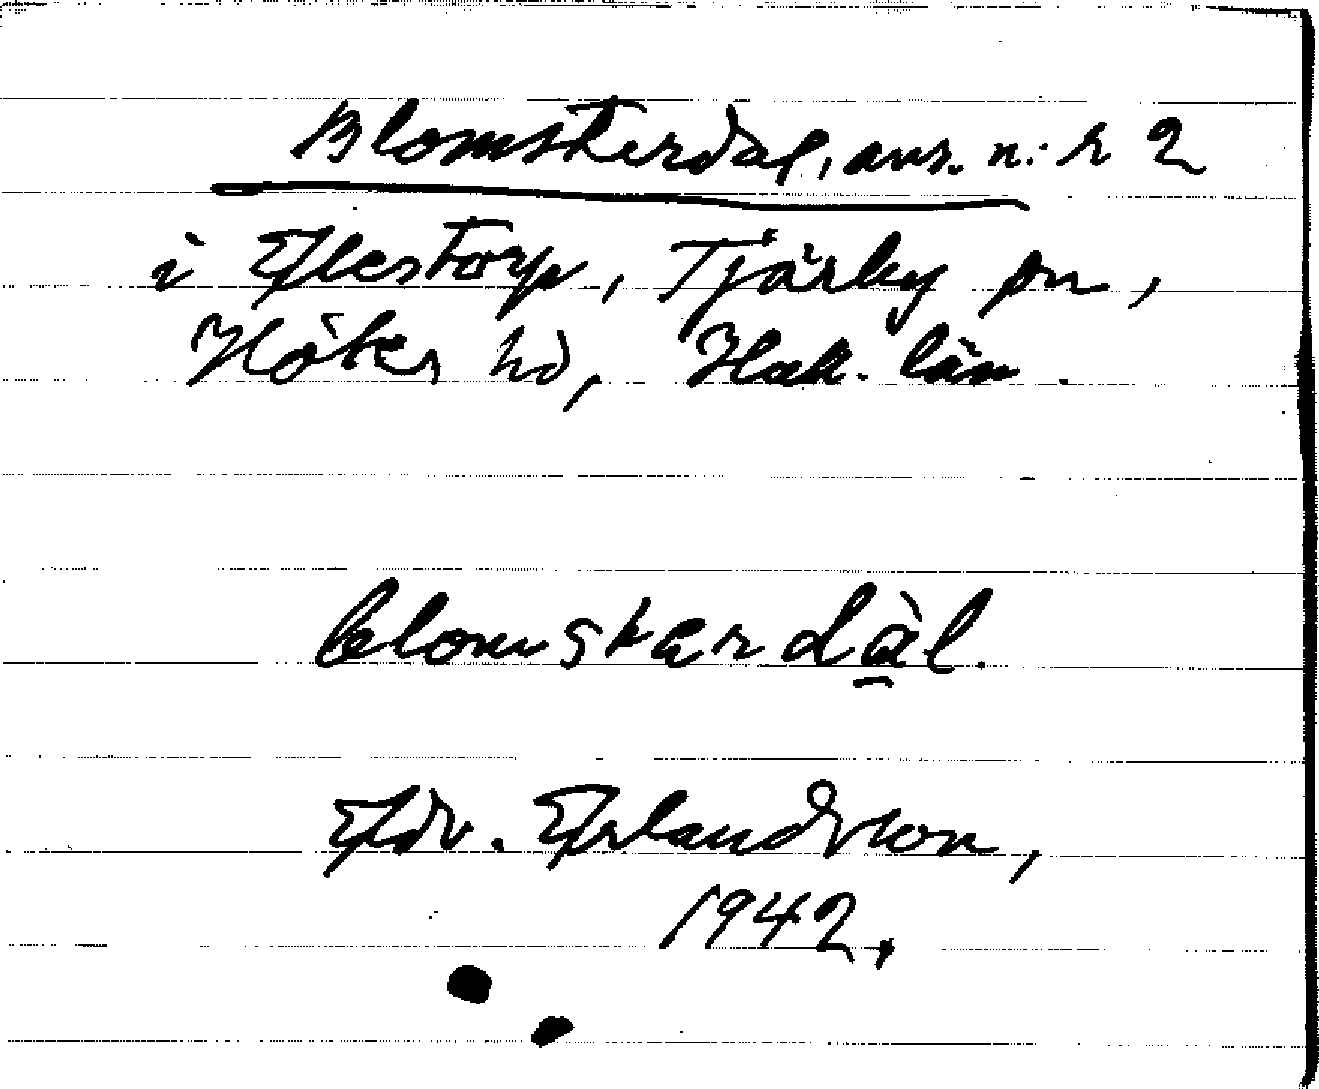 Blomsterdal, avs. n:r 2
i Elestorp, Tjärby sn,
Höks hd, Hall. län.
blomstərdàl.
Edv. Erlandsson,
1942.